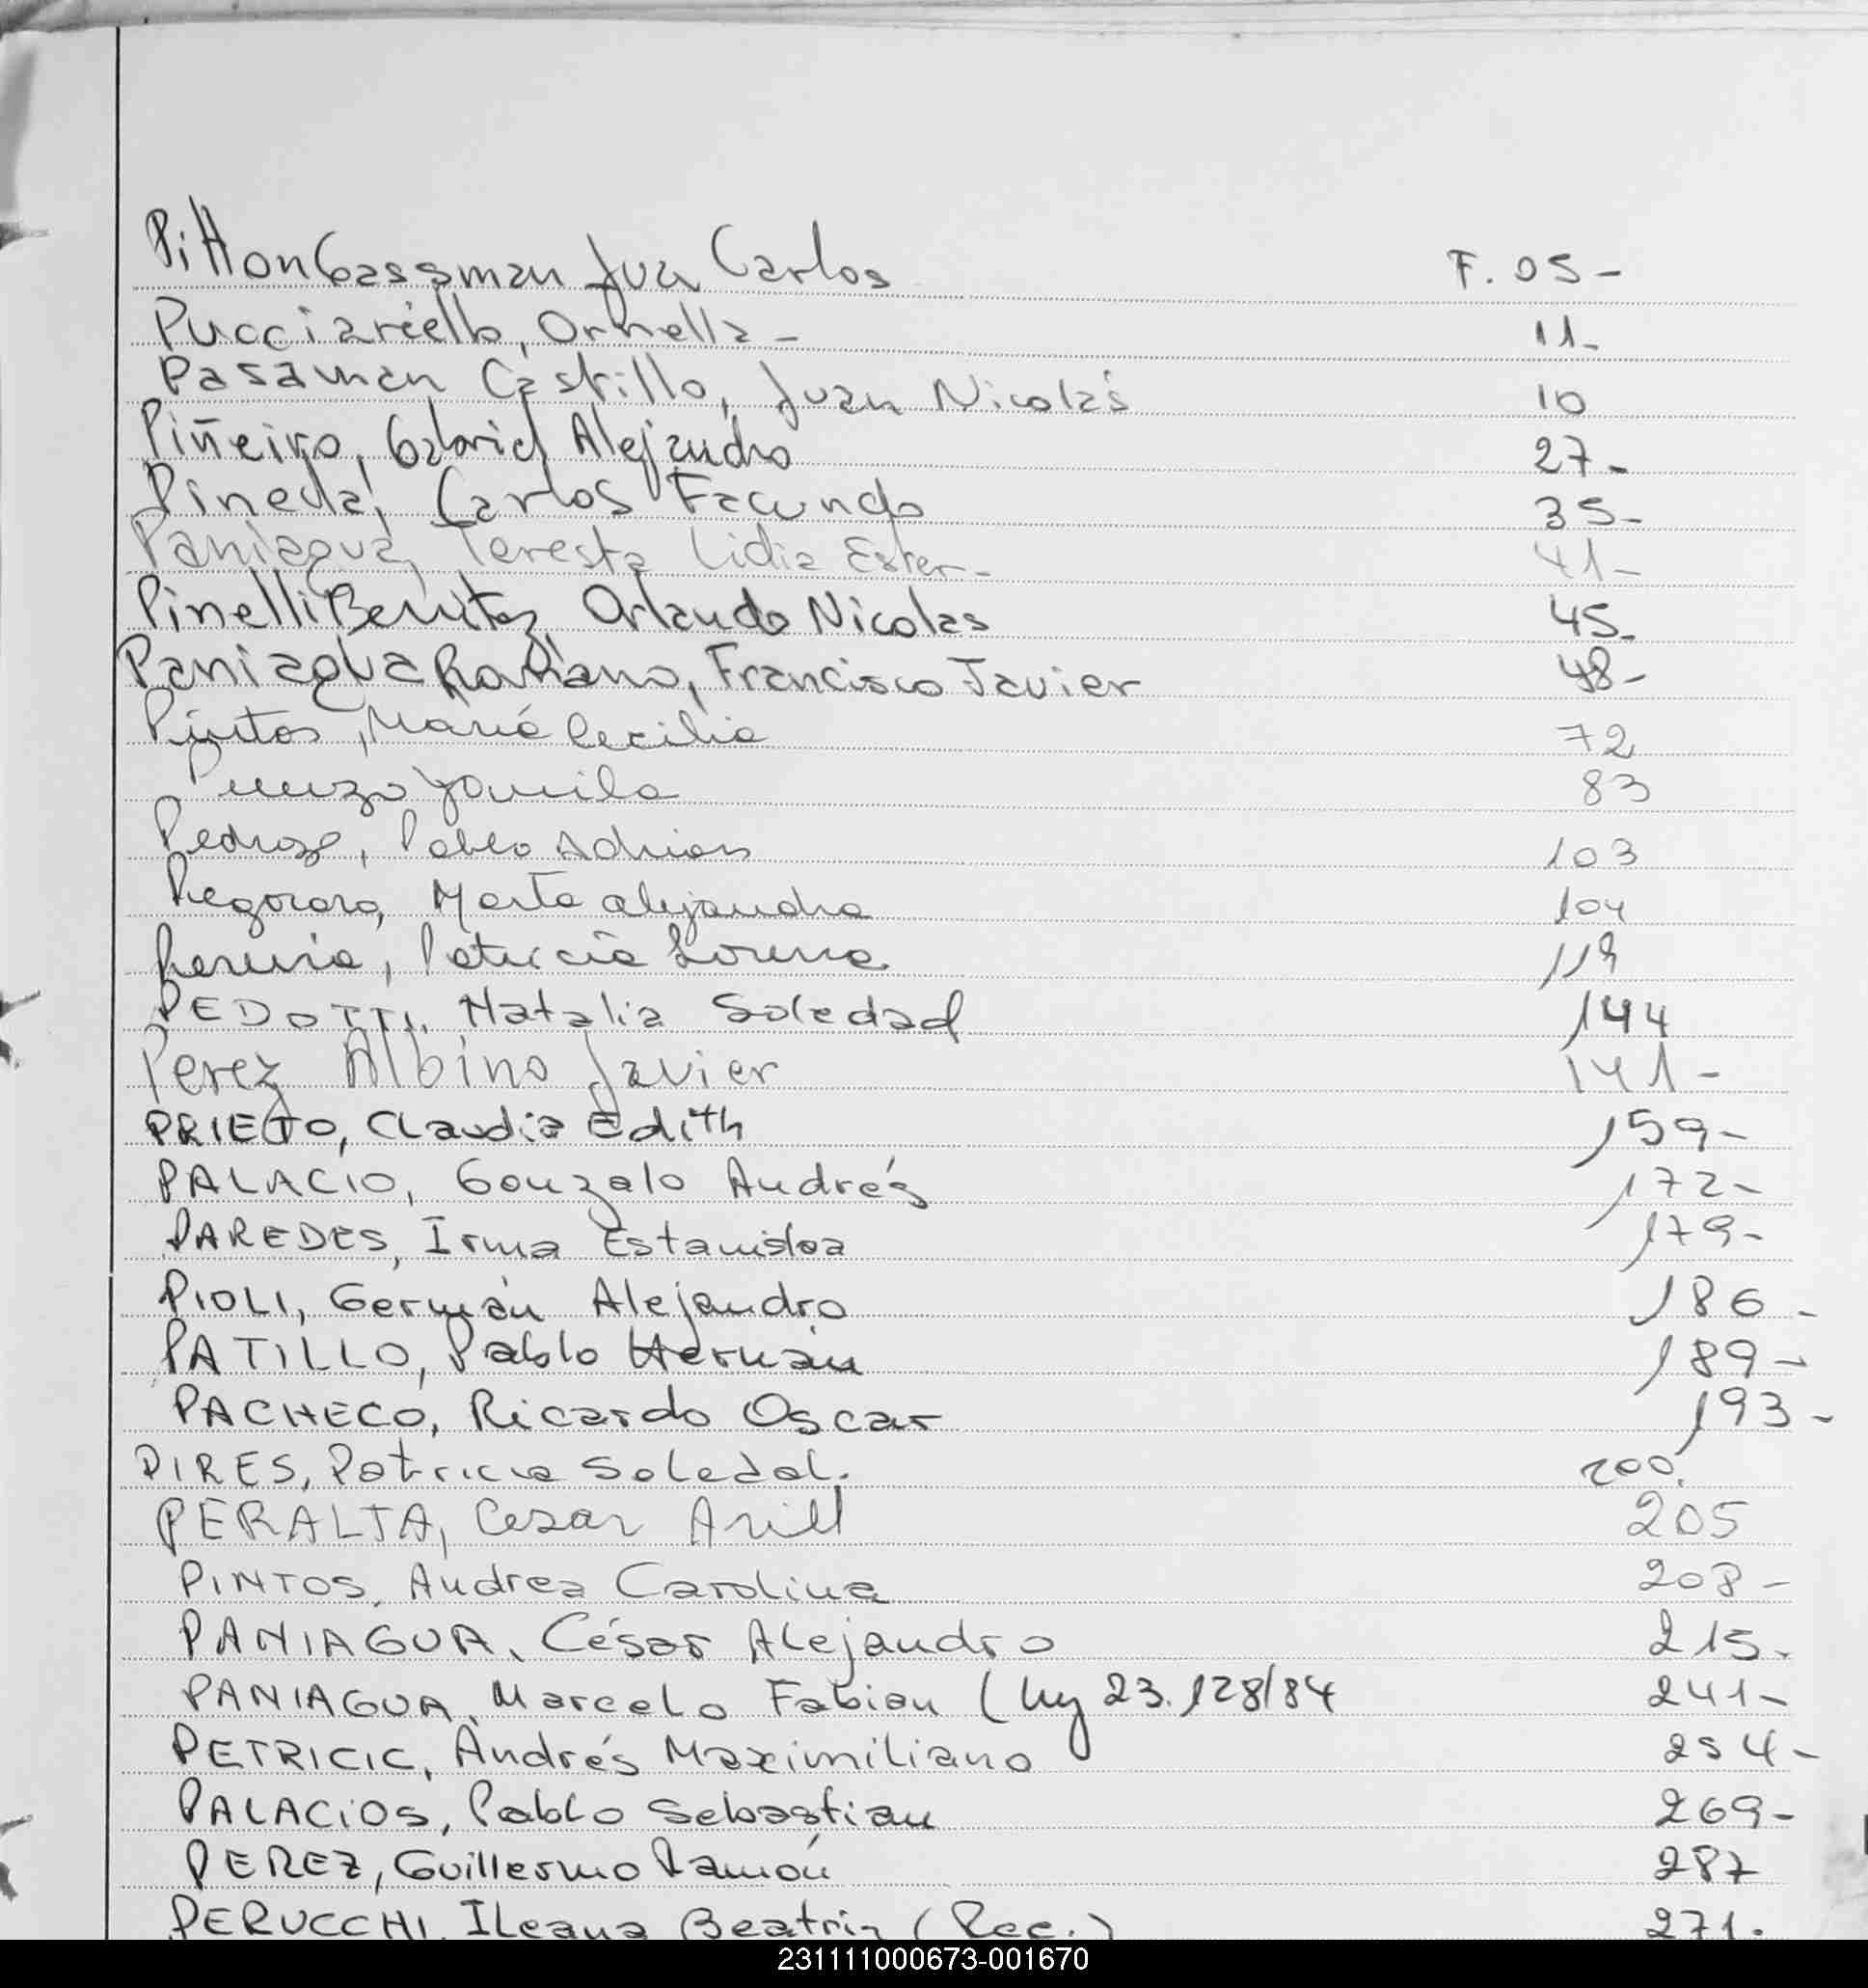 Pitton Gassman Jua Carlos F. 05-
Pucciariello, Ornella- 11-
Pasaman Castillo, Juan Nicolás 10
Piñeiro, Gabriel Alejandro 27-
Pineda, Carlos Facundo 35-
Paniagua, Teresta Lidia Ester- 41-
Pinelli Benitez Orlando Nicolas 45-
Paniagua Romano, Francisco Javier 48-
Pintos, María Cecilia 72
Yamila 83
Pedrozo, Pablo Adrian 103
Pegoraro, Marta Alejandra 104
Patricia Lorena 119
PEDOTTI, Natalia Soledad 144
Perez Albino Javier 141-
PRIETO, Claudia Edith 159-
PALACIO, Gonzalo Andrés 172-
PAREDES, Irma Estanisloa 179-
PIOLI, Germán Alejandro 186-
PATILLO, Pablo Hernán 189-
PACHECO, Ricardo Oscar 193-
PIRES, Patricia Soledad. 200.
PERALTA, Cesar Ariel 205
PINTOS, Andrea Carolina 208-
PANIAGUA, César Alejandro 215-
PANIAGUA, Marcelo Fabian (Ley 23.128/84 241-
PETRICIC, Andrés Maximiliano 254-
PALACIOS, Pablo Sebastian 269-
PEREZ, Guillermo Ramón 287
PERUCCHI, Ileana Beatriz (Rec.) 271.
231111000673-001670